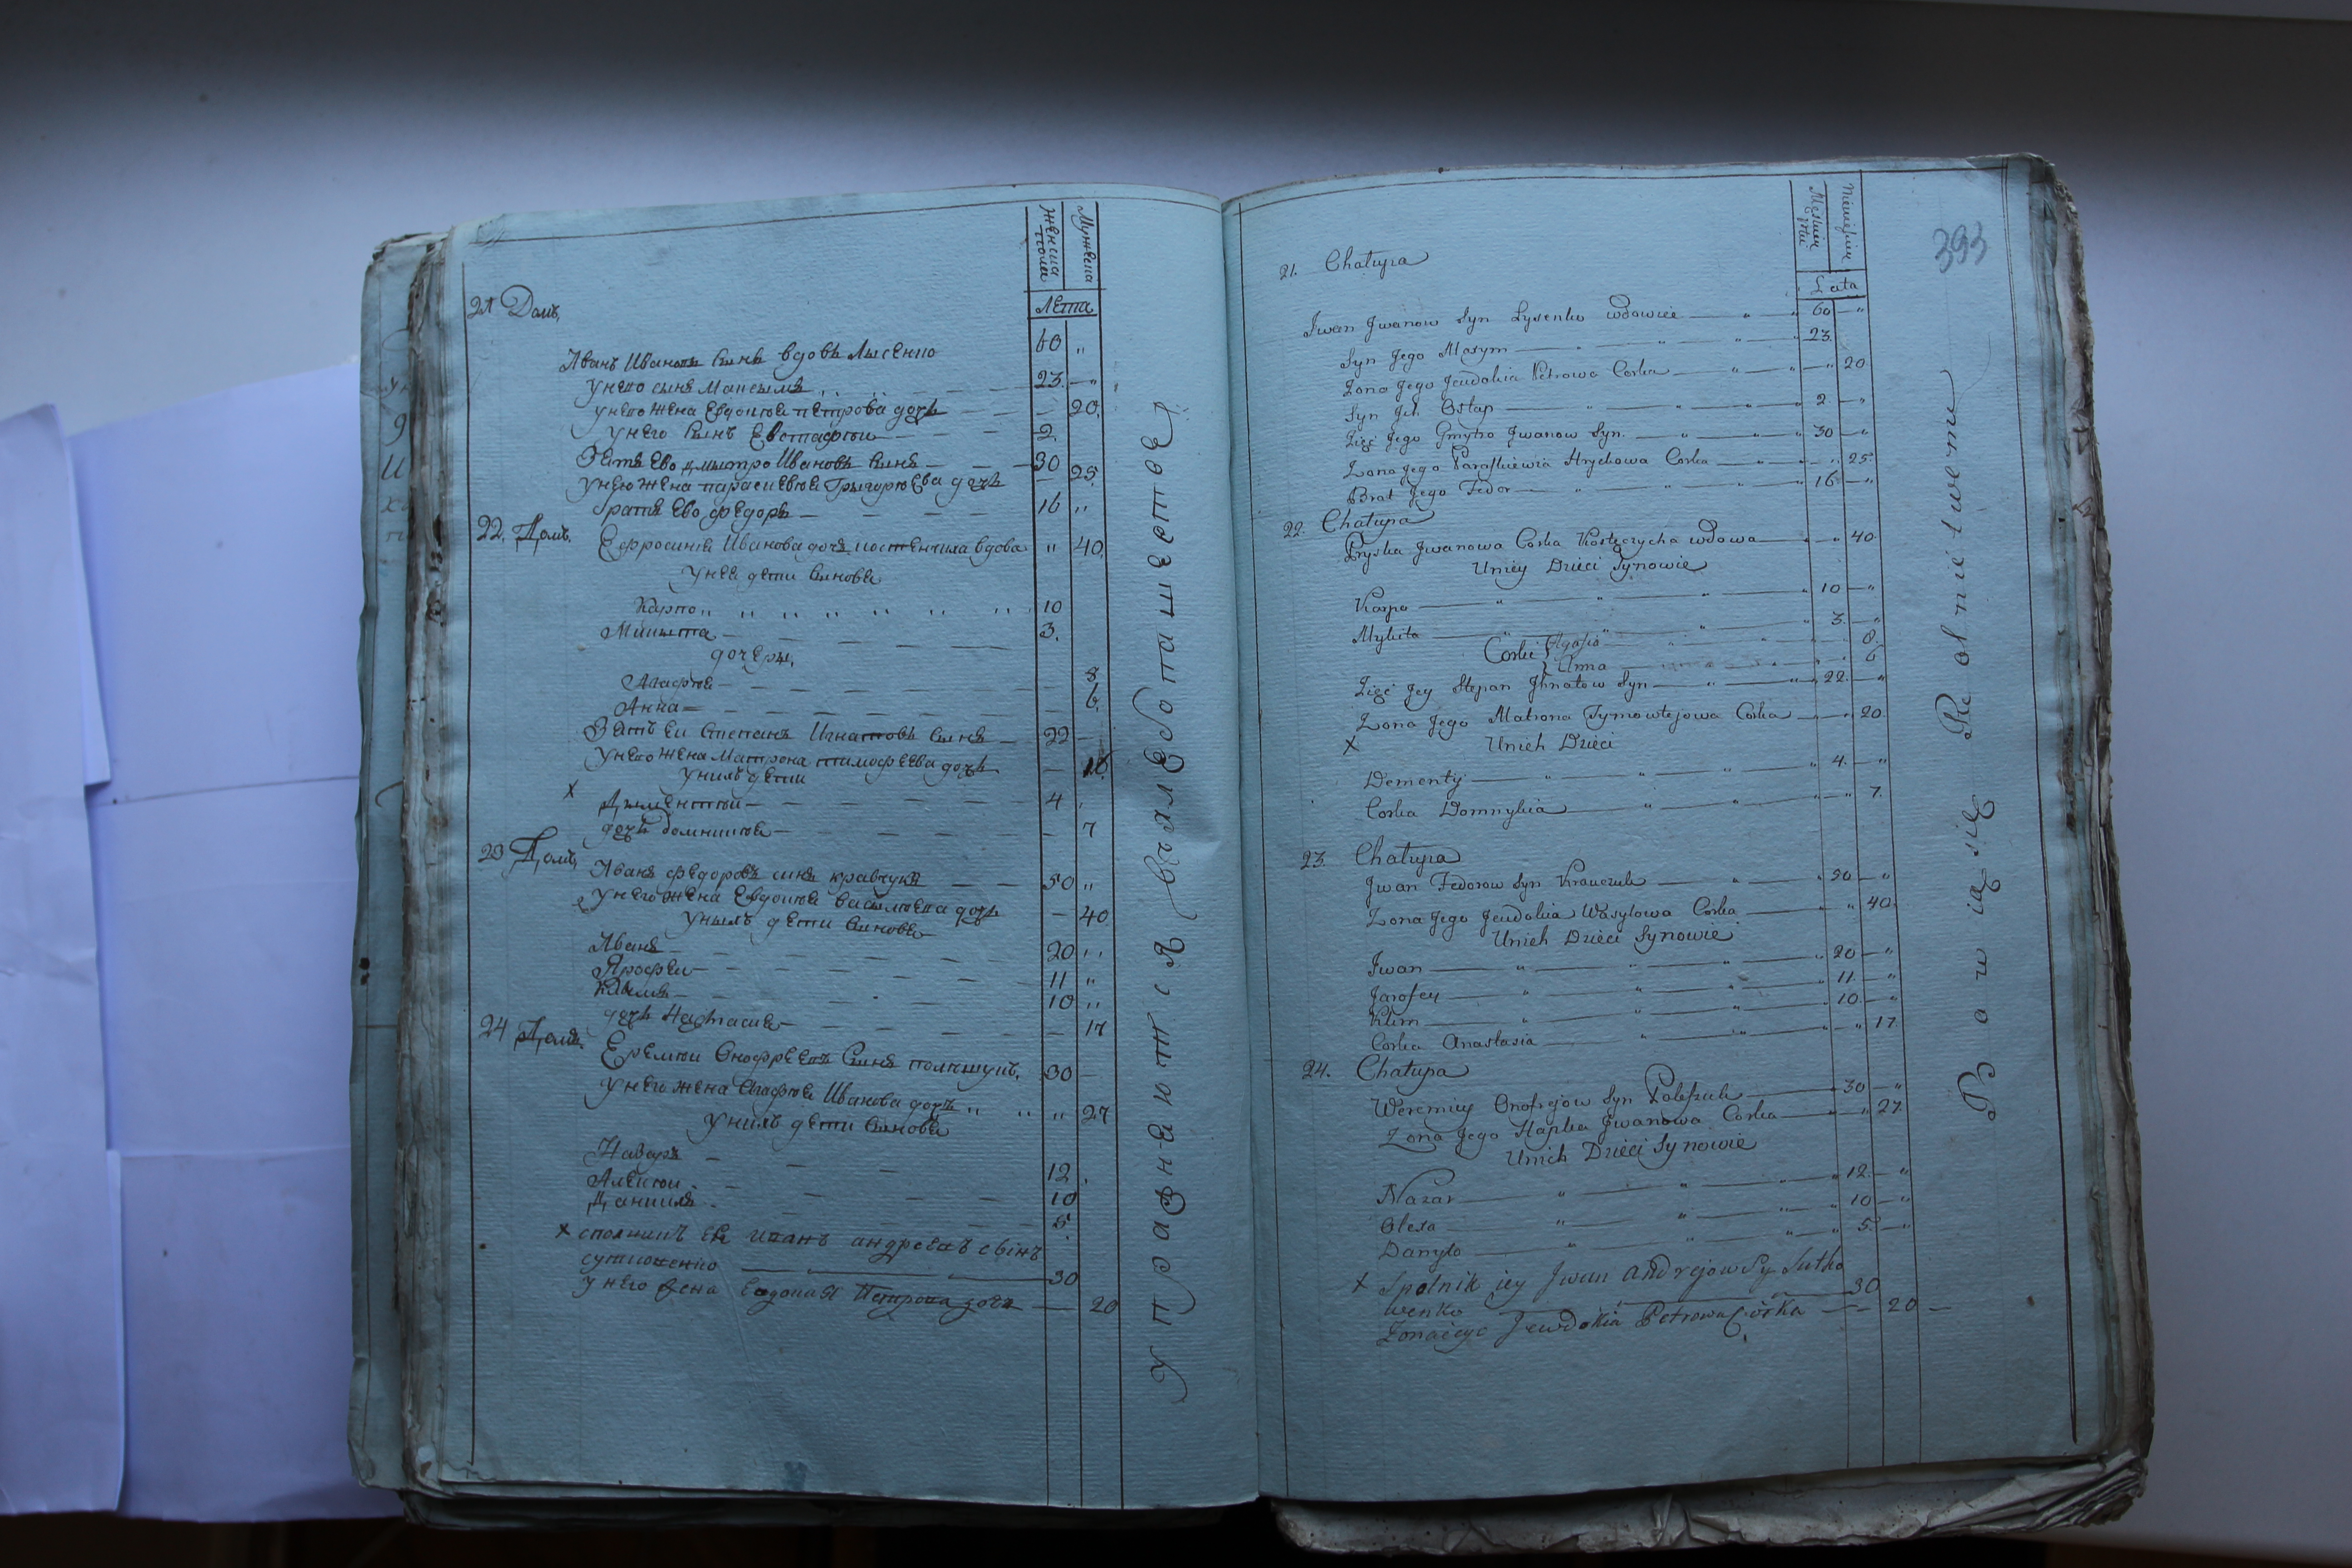 Женша пола
Мужеска
Лета
21 Домъ,
Иванъ Ивановъ сынъ вдовъ Лысенко 60 "
у него сынъ Максымъ 23. "
у него жена Евдокия петрова дочь 20.
у него сынъ Евстафии 2.
Зять ево дмытро Ивановъ сынъ 30
у него жена параскевия Грыгорюева дочь 25.
братъ ево федоръ 16 "
22. Домъ.
Ефросиния Иванова дочь вдова " 40.
у неи дети сынове
Карпо 10
Микыта 3.
дочеры,
Агафия 8
Анна 6.
Зять еи Степанъ Игнатовъ сынъ 22
у него жена Матрона тимофеева дочь
у нихъ дети
х Дыментии 4
дочь домникия 7
23 Домъ,
Иванъ федоровъ синъ кравчукъ 50 "
у него жена Евдокия васылюева дочь 40
у ныхъ дети сынове
Иванъ 20 "
Ярофеи 11 "
Клымъ 10 "
дочь Настасия 17
24 Домъ.
Еремии Онофреевъ сынъ полишукъ. 30
у него жена Агафия Иванова дочь " 27
у нихъ дети сынове
Назаръ 12
Алексии 10
Данилъ 5.
х сполникъ ей иванъ андреевъ сынъ
сутковенко 30
у него жена Евдокия Петрова дочь 20
Упражняются в хлебопашестве
393
Męskiei płci
Niewieściei
Lata
21. Chałupa
Jwan Jwanow Syn Łysenko wdowiec 60 "
Syn Jego Maxym 23.
Żona Jego Jewdokia Petrowa Corka 20
Syn Jch Ostap 2 "
Zięć Jego Dmytro Jwanow Syn. 30 "
Żona Jego Paraskiewia Hryckowa Corka 25.
Brat Jego Fedor 16 "
22. Chałupa
Pryska Jwanowa Corka wdowa 40
Uniey Dzieci Synowie
Karpo 10 "
Mykita 3. "
Corki Agafia 8.
Anna 6
Zięć Jey Stepan Jhnatow Syn 22. "
Żona Jego Matrona Tymowtejowa Corka 20
х Unich Dzieci
Dementy 4. "
Corka Domnykia 7.
23. Chałupa
Jwan Fedorow Syn Krawczuk 50 "
Żona Jego Jewdokia Wasylowa Corka 40
Unich Dzieci Synowie
Jwan 20 "
Jarofey 11 "
Klim 10. "
Corka Anastasia 17.
24. Chałupa
Weremiy Onofrejow Syn Poleszuk 30 "
Żona Jego Hapka Jwanowa Corka 27.
Unich Dzieci Synowie
Nazar 12. "
Olexa 10 "
Danyło 5. "
х Spolnik iey Jwan Andrejow Sy Sutko
wenko 30
Żona iego Jewdokia Petrowa Córka 20
Bawią się Rolnictwem